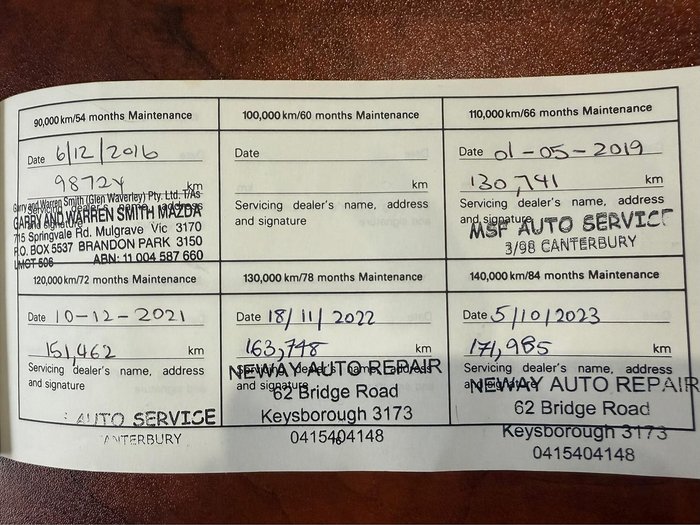 90,000 km/54 months Maintenance
Date 6/12/2016
98724 km
Servicing dealer's name, address
and signature
Garry and Warren Smith (Glen Waverley) Pty. Ltd. T/As
GARRY AND WARREN SMITH MAZDA
715 Springvale Rd. Mulgrave Vic 3170
P.O. BOX 5537 BRANDON PARK 3150
LMCT 506 ABN: 11 004 587 660
100,000 km/60 months Maintenance
Date
km
Servicing dealer's name, address
and signature
110,000 km/66 months Maintenance
Date 01-05-2019
130,741 km
Servicing dealer's name, address
and signature
MSF AUTO SERVICE
3/98 CANTERBURY
120,000 km/72 months Maintenance
Date 10-12-2021
151,462 km
Servicing dealer's name, address
and signature
AUTO SERVICE
ANTERBURY
130,000 km/78 months Maintenance
Date 18/11/2022
163,748 km
Servicing dealer's name, address
and signature
NEWAY AUTO REPAIR
62 Bridge Road
Keysborough 3173
0415404148
140,000 km/84 months Maintenance
Date 5/10/2023
171,985 km
Servicing dealer's name, address
and signature
NEWAY AUTO REPAIR
62 Bridge Road
Keysborough 3173
0415404148